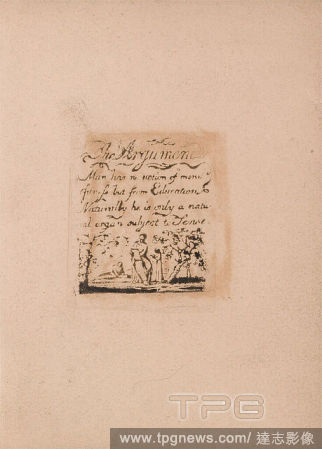 The Argument
Man has no notion of moral
fitness but from Education
Naturally he is only a natu
ral organ subject to Sense
TPG
www.tpgnews.com / 達志影像